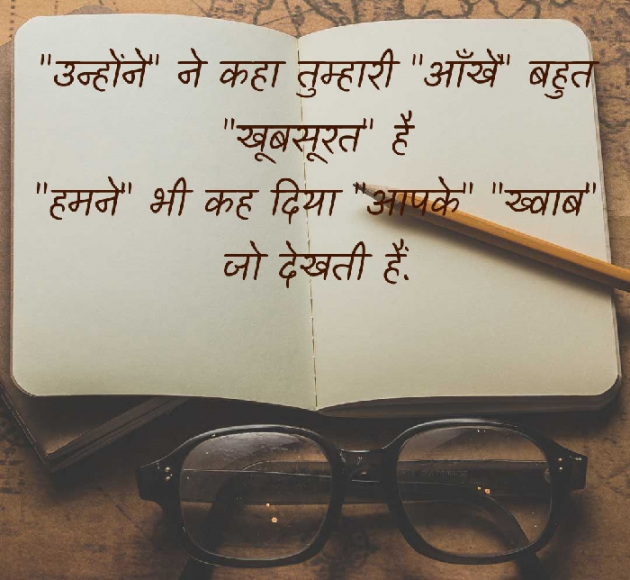 "उन्होंने" ने कहा तुम्हारी "आँखें" बहुत
"खूबसूरत" है
"हमने" भी कह दिया "आपके" "ख्वाब"
जो देखती हैं.